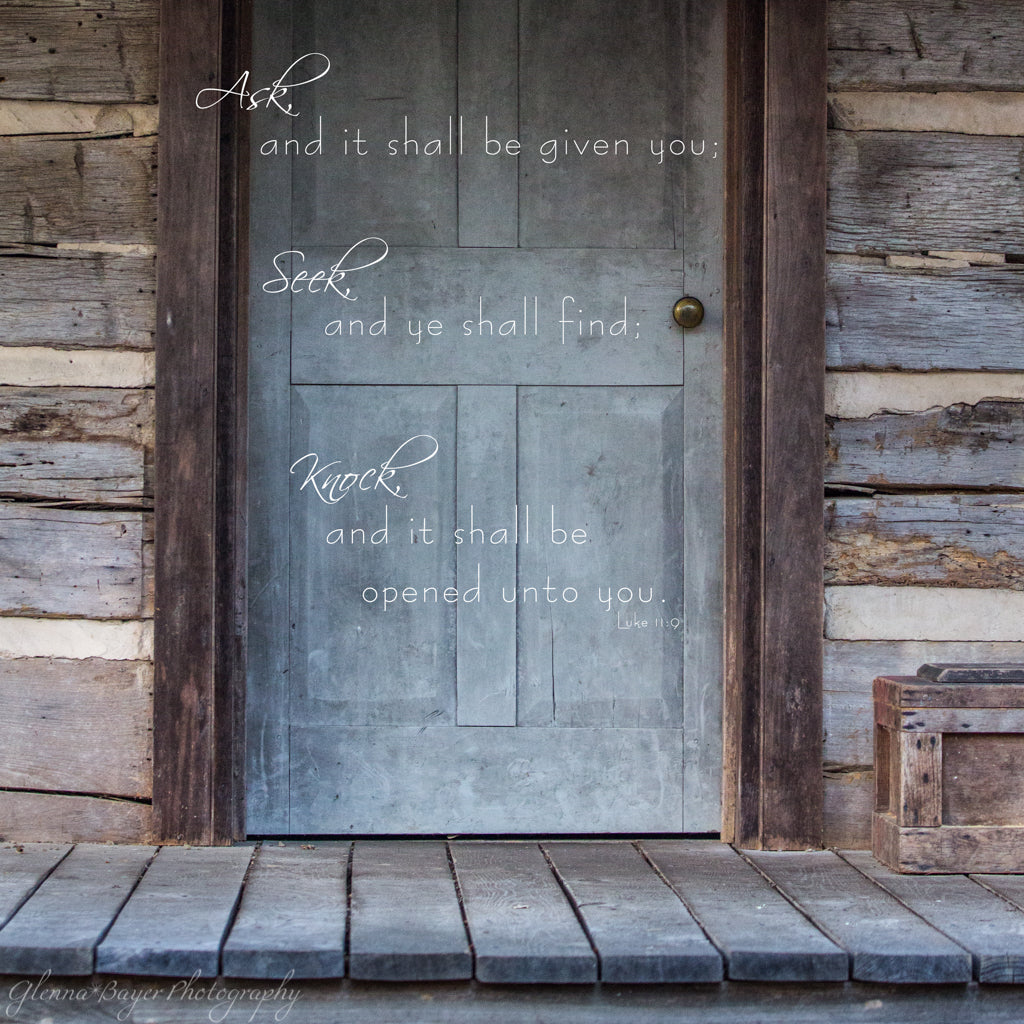 Ask,
and it shall be given you;
Seek,
and ye shall find;
Knock,
and it shall be
opened unto you.
Luke 11:9
Glenna Bayer Photography